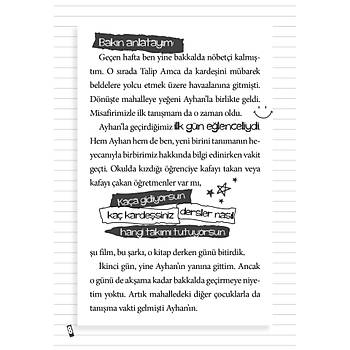 Bakın anlatayım
Geçen hafta ben yine bakkalda nöbetçi kalmış-
tım. O sırada Talip Amca da kardeşini mübarek
beldelere yolcu etmek üzere havaalanına gitmişti.
Dönüşte mahalleye yeğeni Ayhan'la birlikte geldi.
Misafirimizle ilk tanışmam da o zaman oldu.
Ayhan'la geçirdiğimiz ilk gün eğlenceliydi.
Hem Ayhan hem de ben, yeni birini tanımanın he-
yecanıyla birbirimiz hakkında bilgi edinirken vakit
geçti. Okulda kızdığı öğrenciye kafayı takan veya
kafayı çakan öğretmenler var mı,
Kaça gidiyorsun
kaç kardeşsiniz dersler nasıl
hangi takımı tutuyorsun
şu film, bu şarkı, o kitap derken günü bitirdik.
İkinci gün, yine Ayhan'ın yanına gittim. Ancak
o günü de akşama kadar bakkalda geçirmeye niye-
tim yoktu. Artık mahalledeki diğer çocuklarla da
tanışma vakti gelmişti Ayhan'ın.